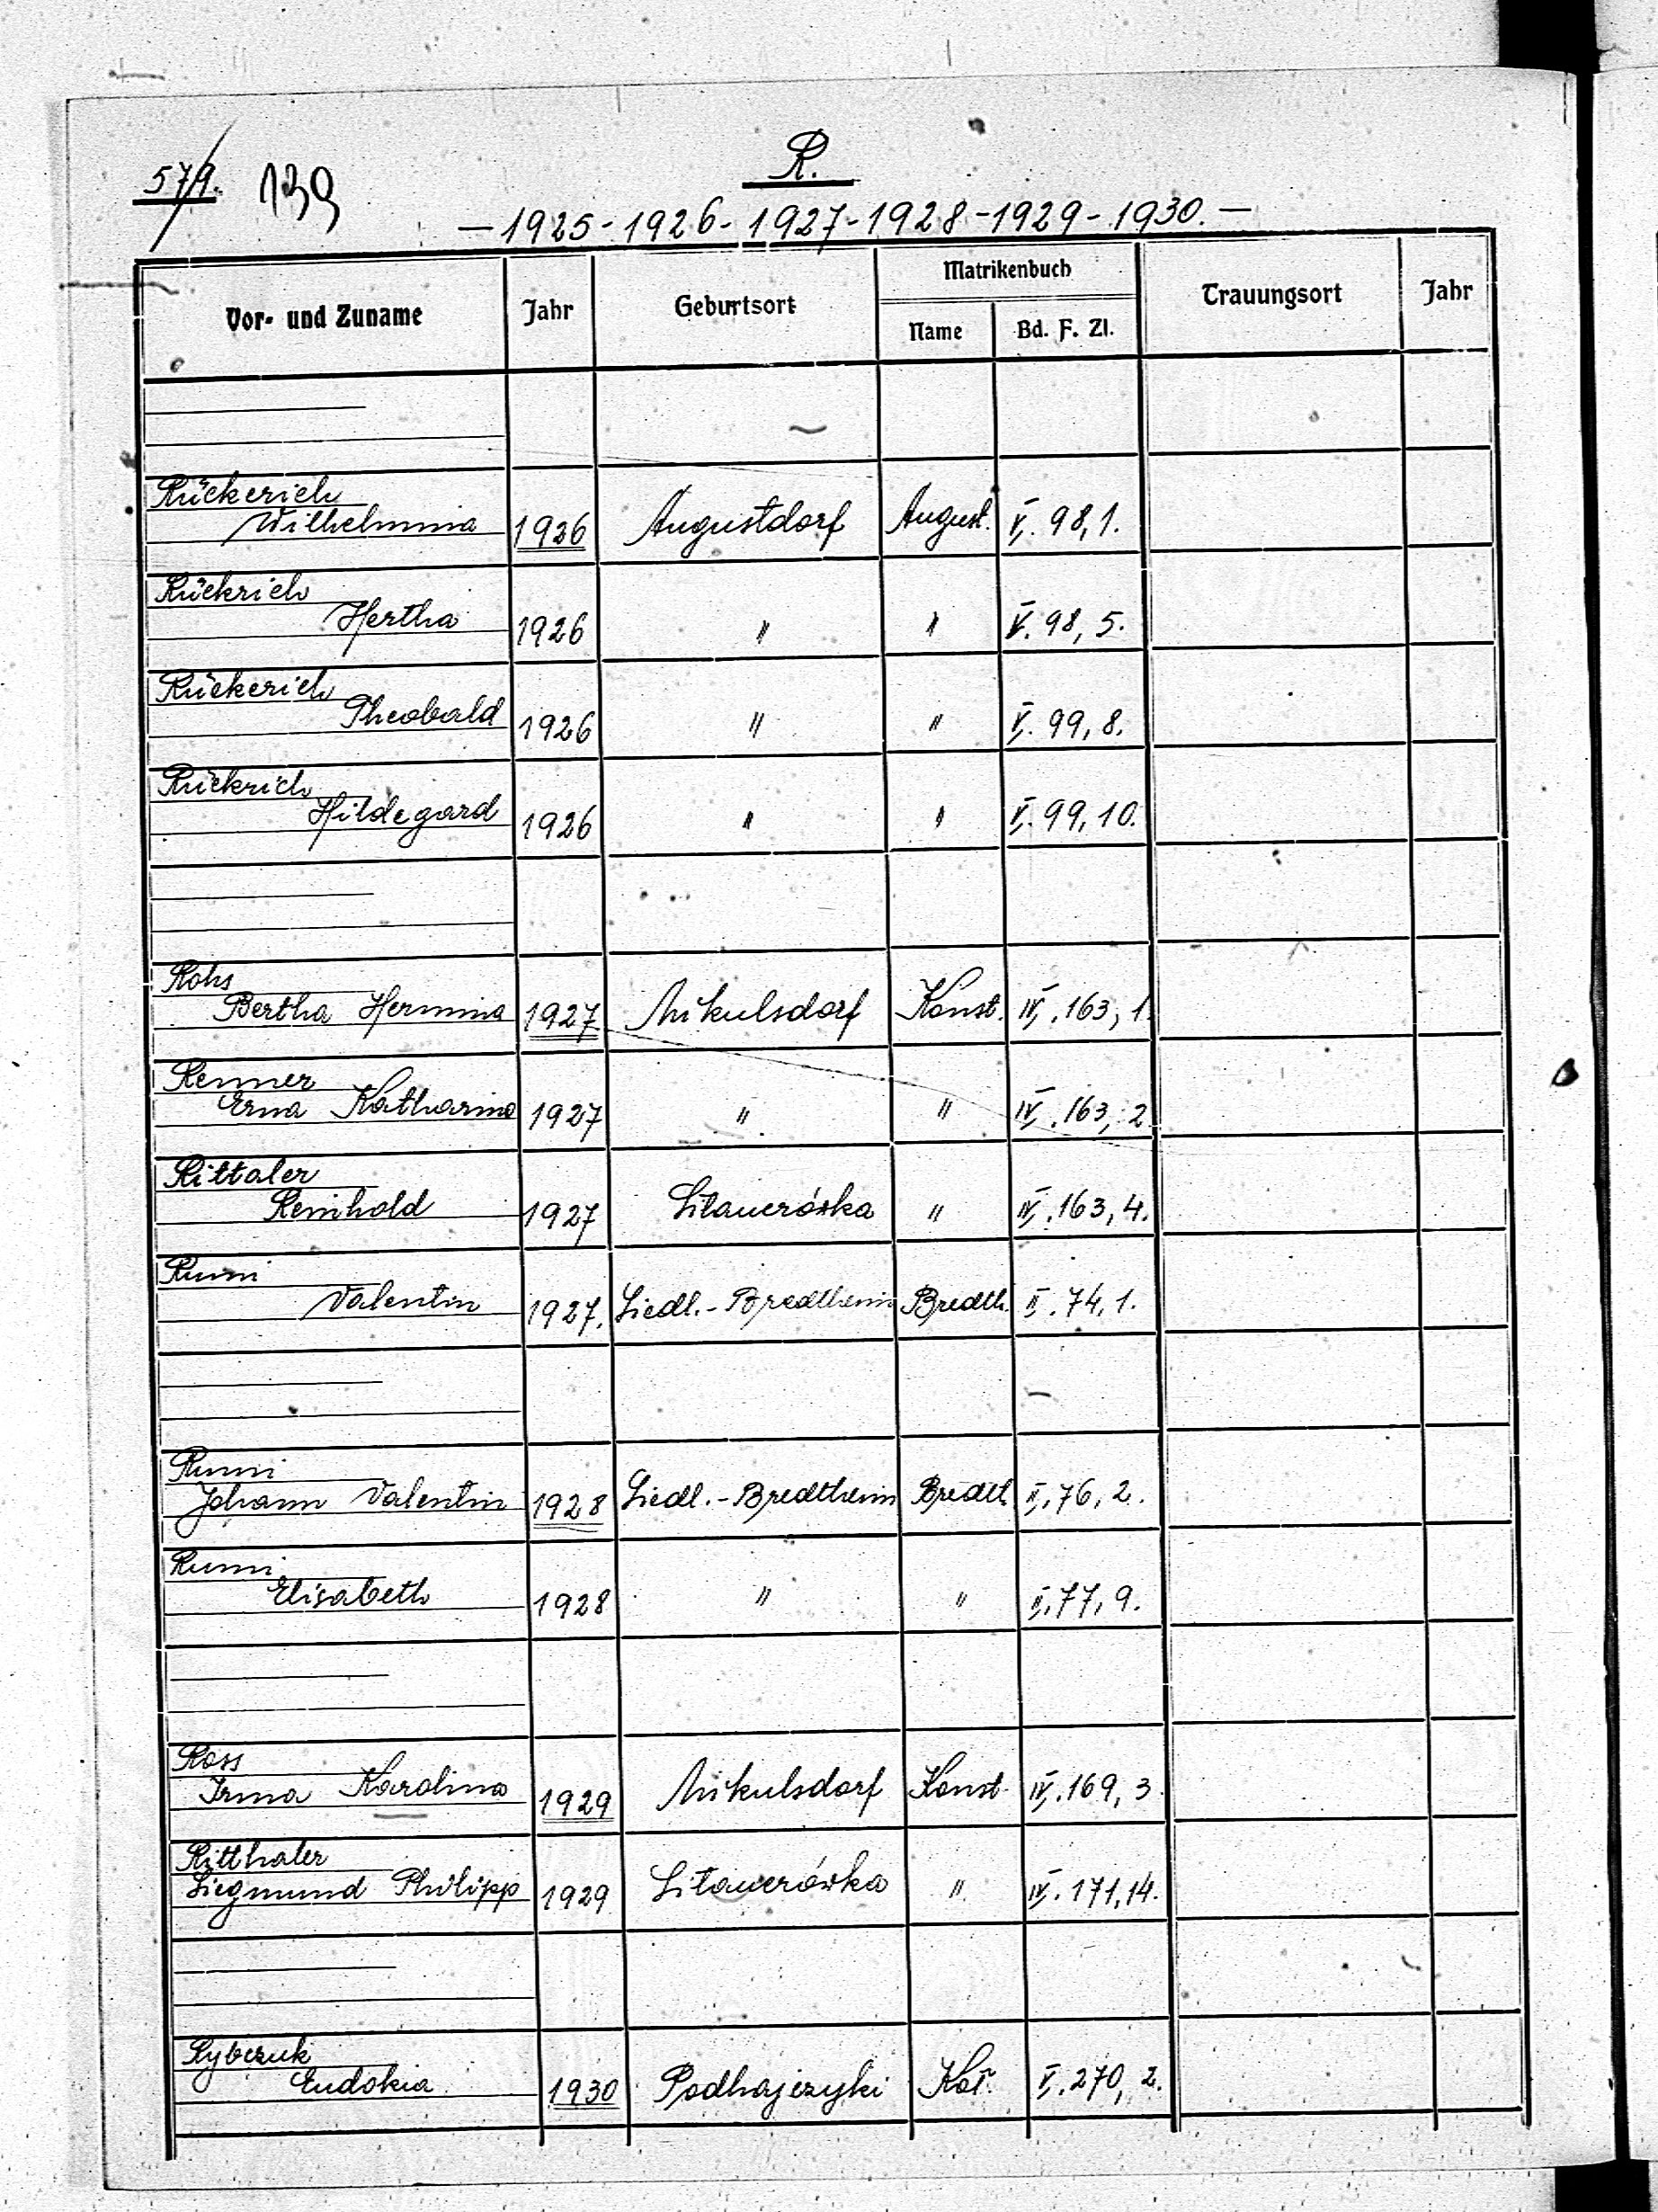 579. 139
R.
— 1925 - 1926 - 1927 - 1928 - 1929 - 1930. —
Vor- und Zuname Jahr Geburtsort Matrikenbuch Trauungsort Jahr
Name Bd. F. Zl.
Rückerich
Wilhelmina 1926 Augustdorf August. V. 98, 1.
Rückrich
Hertha 1926 " " V. 98, 5.
Rückerich
Theobald 1926 " " V. 99, 8.
Rückrich
Hildegard 1926 " " V. 99, 10.
Rohs
Bertha Hermina 1927 Mikulsdorf Konst. IV. 163, 1.
Renner
Erna Katharina 1927 " " IV. 163, 2.
Rittaler
Reinhold 1927 Sitauerówka " IV. 163, 4.
Rumi
Valentin 1927. Siedl.-Bredtheim Bredth. II. 74, 1.
Rumi
Johann Valentin 1928 Siedl.-Bredtheim Bredth. II. 76, 2.
Rumi
Elisabeth 1928 " " II. 77, 9.
Ross
Irma Karolina 1929 Mikulsdorf Konst. IV. 169, 3.
Ritthaler
Siegmund Philipp 1929 Sitauerówka " IV. 171, 14.
Rybczuk
Eudokia 1930 Podhajczyki Koł. V. 270, 2.